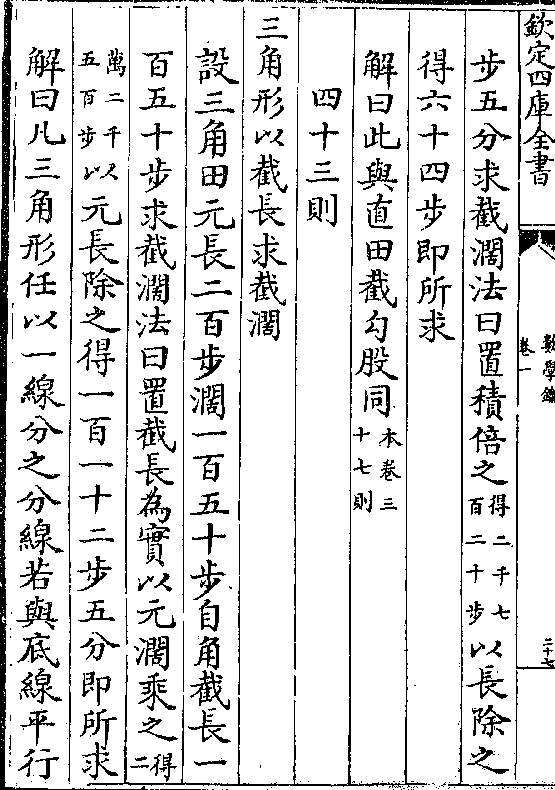 欽定四庫全書
數學鑰
卷一
二十七
步五分求截濶法曰置積倍之得二千七百二十步以長除之
得六十四步即所求
解曰此與直田截勾股同本卷三十七則
四十三則
三角形以截長求截濶
設三角田元長二百步濶一百五十步自角截長一
百五十步求截濶法曰置截長為實以元濶乘之得二
萬二千又五百步以元長除之得一百一十二步五分即所求
解曰凡三角形任以一線分之分線若與底線平行